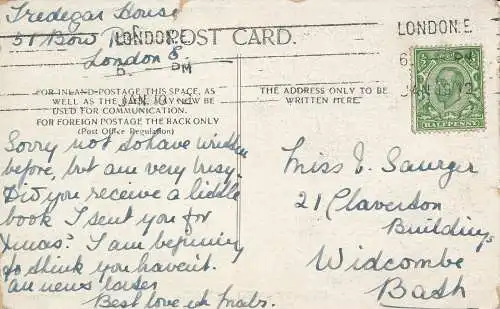 Tredegar House
51 Bow Rd
London E.
POST CARD.
LONDON. E.
JAN 10 12
LONDON. E.
JAN 10 12
FOR INLAND POSTAGE THIS SPACE, AS
WELL AS THE BACK, MAY NOW BE
USED FOR COMMUNICATION.
FOR FOREIGN POSTAGE THE BACK ONLY
(Post Office Regulation)
THE ADDRESS ONLY TO BE
WRITTEN HERE.
HALFPENNY
Sorry not so have written
before, but am very busy.
Did you receive a liddle
book I sent you for
Xmas? I am beginning
to think you havent.
au news later
Best love
Miss E. Sawyer
21 Claverton
Buildings
Widcombe
Bath